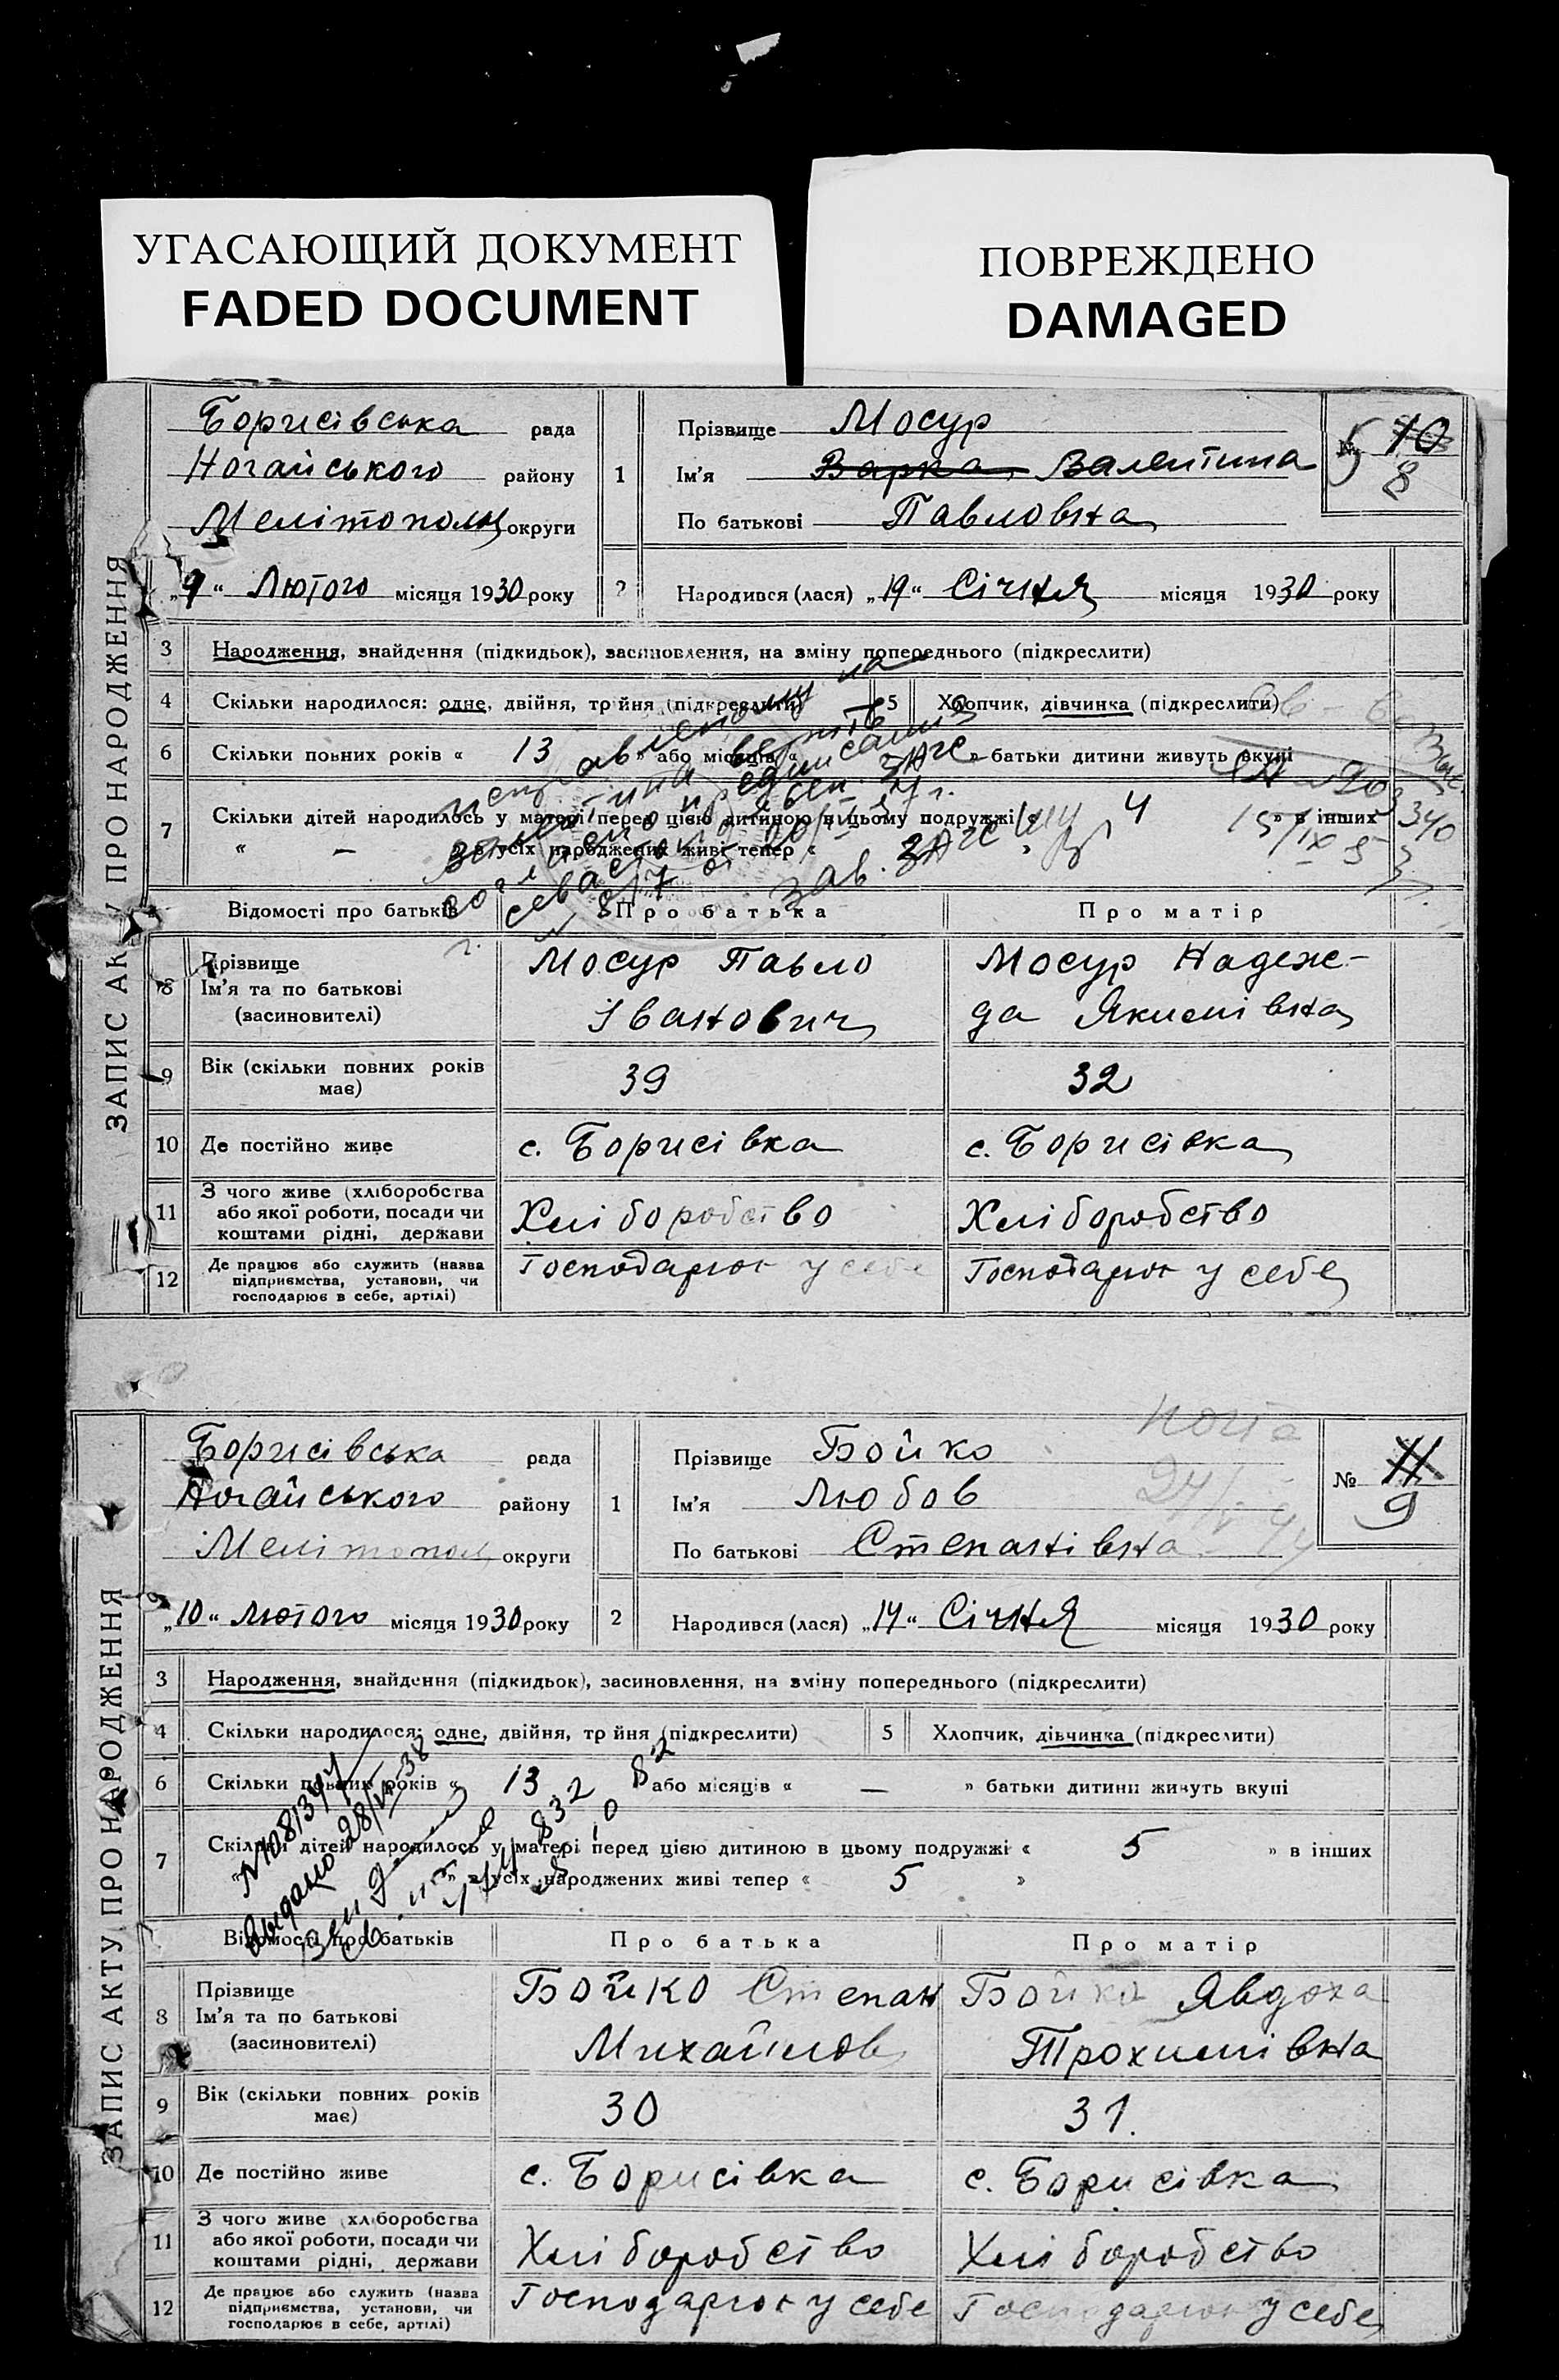 УГАСАЮЩИЙ ДОКУМЕНТ
FADED DOCUMENT
ПОВРЕЖДЕНО
DAMAGED
ЗАПИС АКТУ ПРО НАРОДЖЕННЯ
Борисівська рада
Ногайського району
Мелітополь округи
„9“ Лютого місяця 1930 року
1
Прізвище Мосур
Ім'я Варка Валентина
По батькові Павловна
№ 10
8
2 Народився (лася) „19“ Січня місяця 1930 року
3 Народження, знайдення (підкидьок), засиновлення, на зміну попереднього (підкреслити)
4 Скільки народилося: одне, двійня, трійня (підкреслити) 5 Хлопчик, дівчинка (підкреслити)
6 Скільки повних років « 13 » або місяців « » батьки дитини живуть вкупі
7 Скільки дітей народилось у матері перед цією дитиною в цьому подружжі « 4 » в інших
« — » з усіх народжених живі тепер « »
зав. ЗАГС
Відомості про батьків Про батька Про матір
8 Прізвище
Ім'я та по батькові
(засиновителі)
Мосур Павло
Іванович
Мосур Надеж-
да Якимівна
9 Вік (скільки повних років має) 39 32
10 Де постійно живе с. Борисівка с. Борисівка
11 З чого живе (хліборобства
або якої роботи, посади чи
коштами рідні, держави
Хліборобство Хліборобство
12 Де працює або служить (назва
підприємства, установи, чи
господарює в себе, артілі)
Господарює у себе Господарює у себе
ЗАПИС АКТУ ПРО НАРОДЖЕННЯ
Борисівська рада
Ногайського району
Мелітополь округи
„10“ Лютого місяця 1930 року
1
Прізвище Бойко
Ім'я Любов
По батькові Степанівна
№ 11
9
2 Народився (лася) „14“ Січня місяця 1930 року
3 Народження, знайдення (підкидьок), засиновлення, на зміну попереднього (підкреслити)
4 Скільки народилося: одне, двійня, трійня (підкреслити) 5 Хлопчик, дівчинка (підкреслити)
6 Скільки повних років « 13 » або місяців « — » батьки дитини живуть вкупі
7 Скільки дітей народилось у матері перед цією дитиною в цьому подружжі « 5 » в інших
« » з усіх народжених живі тепер « 5 »
Відомості про батьків Про батька Про матір
8 Прізвище
Ім'я та по батькові
(засиновителі)
Бойко Степан
Михайлов
Бойко Явдоха
Трохимівна
9 Вік (скільки повних років має) 30 31.
10 Де постійно живе с. Борисівка с. Борисівка
11 З чого живе (хліборобства
або якої роботи, посади чи
коштами рідні, держави
Хліборобство Хліборобство
12 Де працює або служить (назва
підприємства, установи, чи
господарює в себе, артілі)
Господарює у себе Господарює у себе